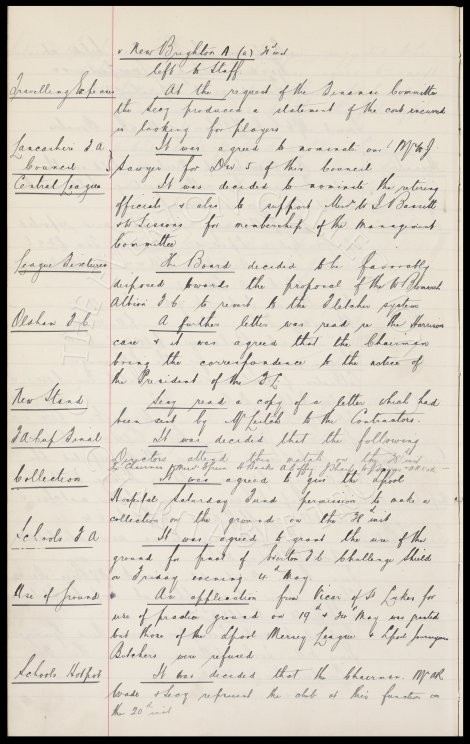 v New Brighton A (a) inst
left to Staff
Travelling Expenses At the request of the Finance Committee
the Secy produced a statement of the cost incurred
in looking for players
Lancashire FA Council It was agreed to nominate our Mr W J
Sawyer for Div 5 of this Council
Central League It was decided to nominate the retiring
officials & also to support Messrs
for membership of the Management
Committee
League Fixtures The Board decided to be favorably
disposed towards the proposal of the W Bromwich
Albion F C to revert to the Fletcher system
Oldham F C A further letter was read re the Harrison
case & it was agreed that the Chairman
bring the correspondence to the notice of
the President of the F L
New Stand Secy read a copy of a letter which had
been sent by Mr Leitch to the Contractors.
FA Cup Final It was decided that the following
Directors attend this match on the inst
The Chairman
Collection It was agreed to give the Lpool
Hospital Saturday Fund permission to make a
collection on the ground on the inst
Schools F A It was agreed to grant the use of the
ground for final of Everton F C Challenge Shield
on Friday evening 4th May
Use of Ground An application from Vicar of St Lukes for
use of practice ground on 19th & May was granted
but those of the Lpool Mersey League & Lpool
Butchers were refused
Schools Hotpot It was decided that the Chairman, Mr AR
Wade & Secy represent the club at this function on
the 20th inst